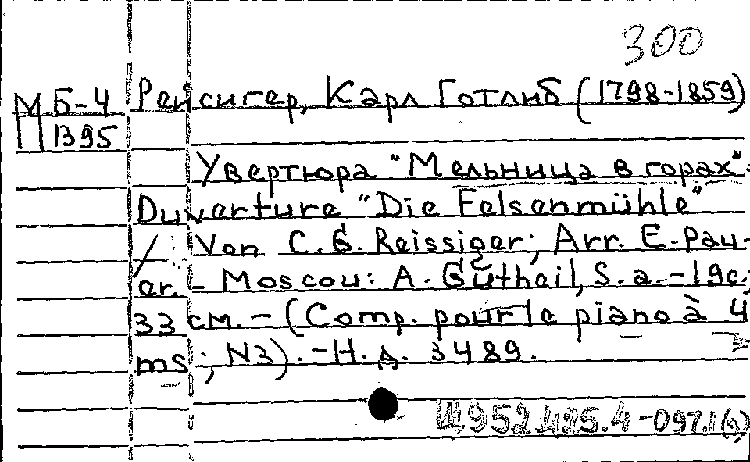 300
М Б-4 Рейсигер, Карл Готлиб (1798-1859)
П 1395
Увертюра "Мельница в горах".
Ouverture "Die Felsenmühle"
/ Von C.G. Reissiger; Arr. E. Pau-
er. - Moscou: A. Gutheil, S. a. - 19c;
33 см. - (Comp. pour le piano à 4
ms; N3). - Н. д. 3489.
Щ952.425.4-097.1(6)